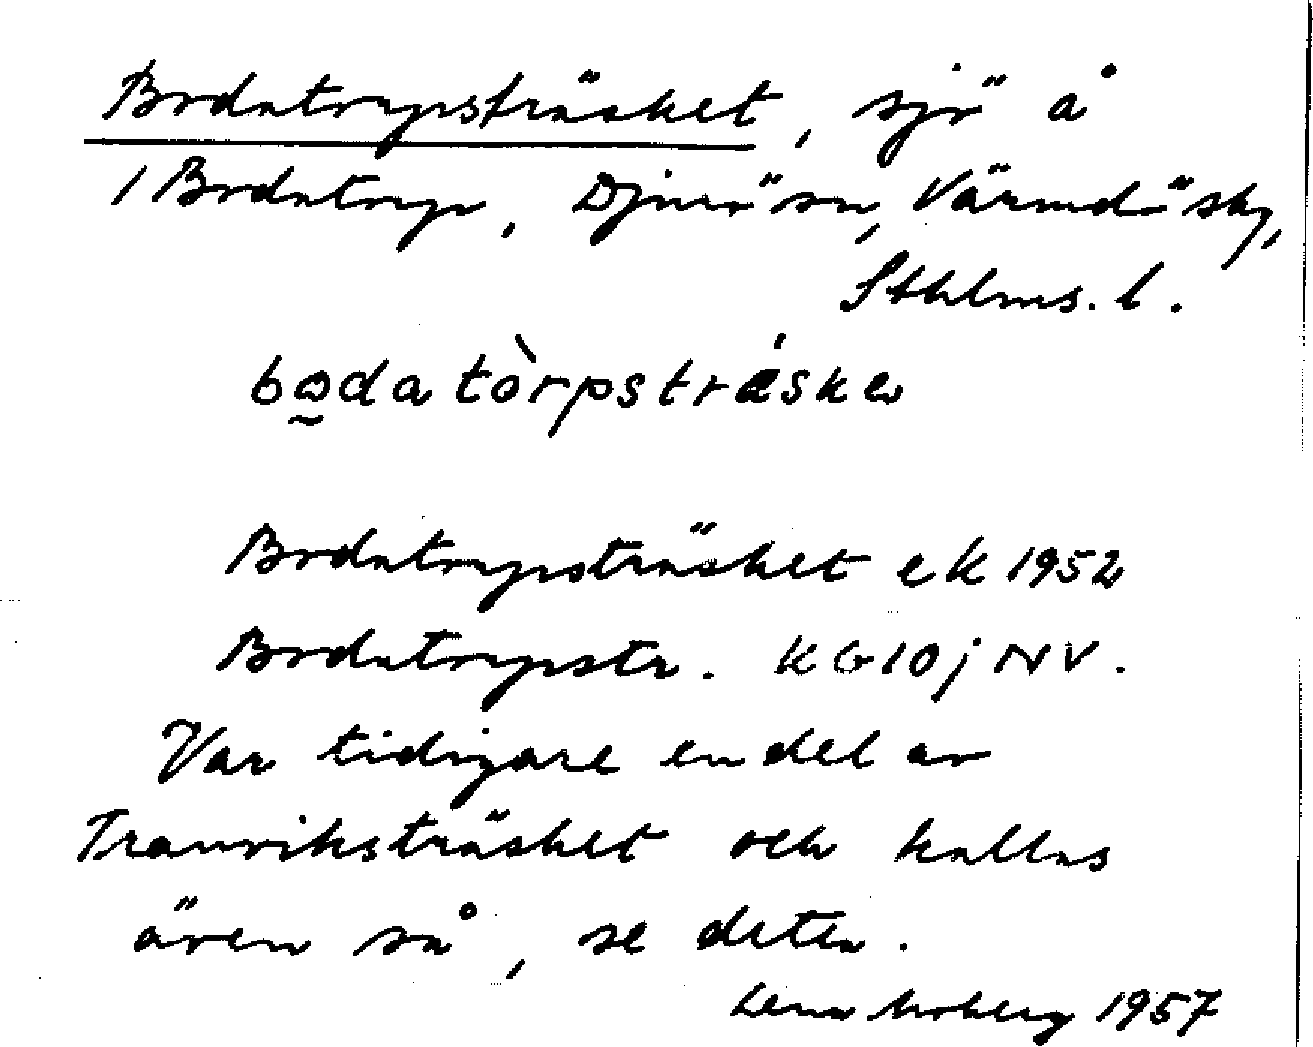 Bodatorpsträsket, sjö å
1 Bodatorp, Djurö sn, Värmdö sky,
Sthlms. l.
bodatòrpstrǽske
Bodatorpsträsket ek 1952
Bodatorpstr. KG 10j NV.
Var tidigare en del av
Tranviksträsket och kallas
även så, se detta.
Lena Moberg 1957